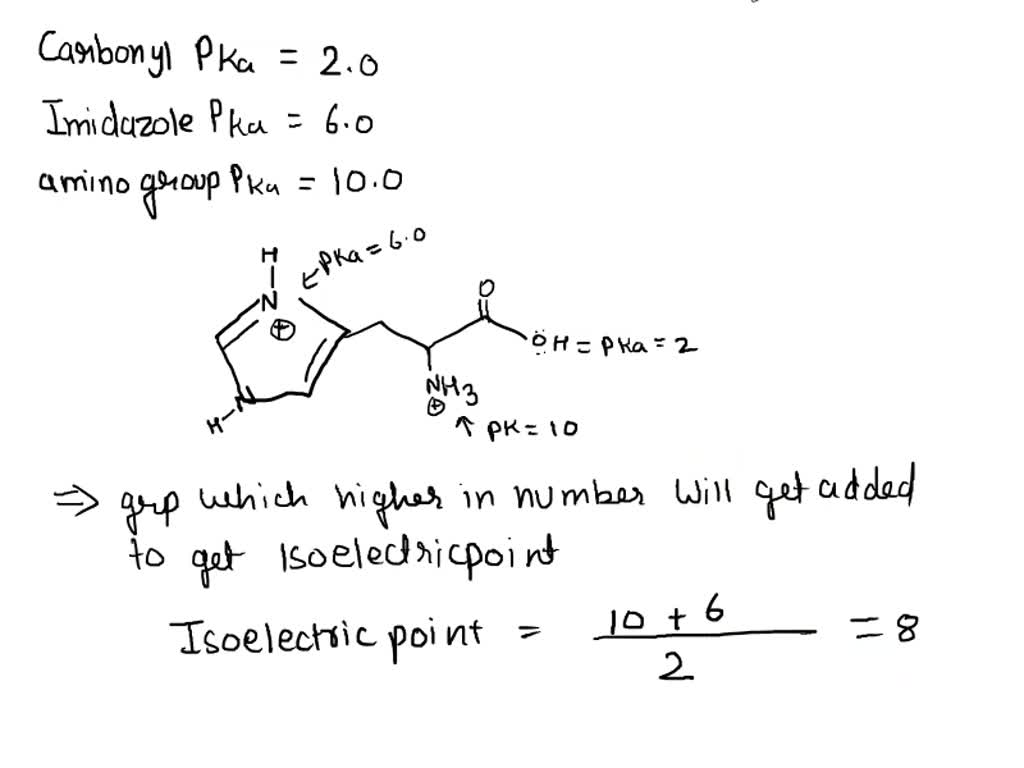 Carbonyl PKa = 2.0
Imidazole PKa = 6.0
amino group PKa = 10.0
H
PKa = 6.0
N
⊕
O
ÖH = PKa = 2
NH3
⊕
H-N
↑ PK = 10
⇒ grp which higher in number will get added
to get Isoelectricpoint
Isoelectric point = 10 + 6 = 8
2